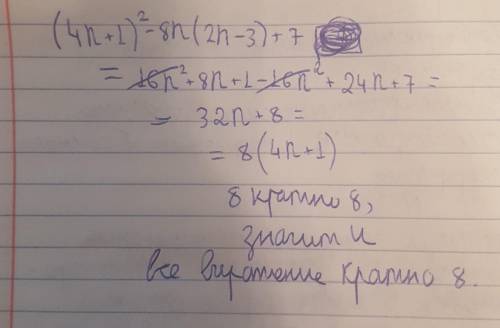 (4n+1)²-8n(2n-3)+7
= 16n²+8n+1-16n²+24n+7=
= 32n+8=
= 8(4n+1)
8 кратно 8,
значит и
все выражение кратно 8.